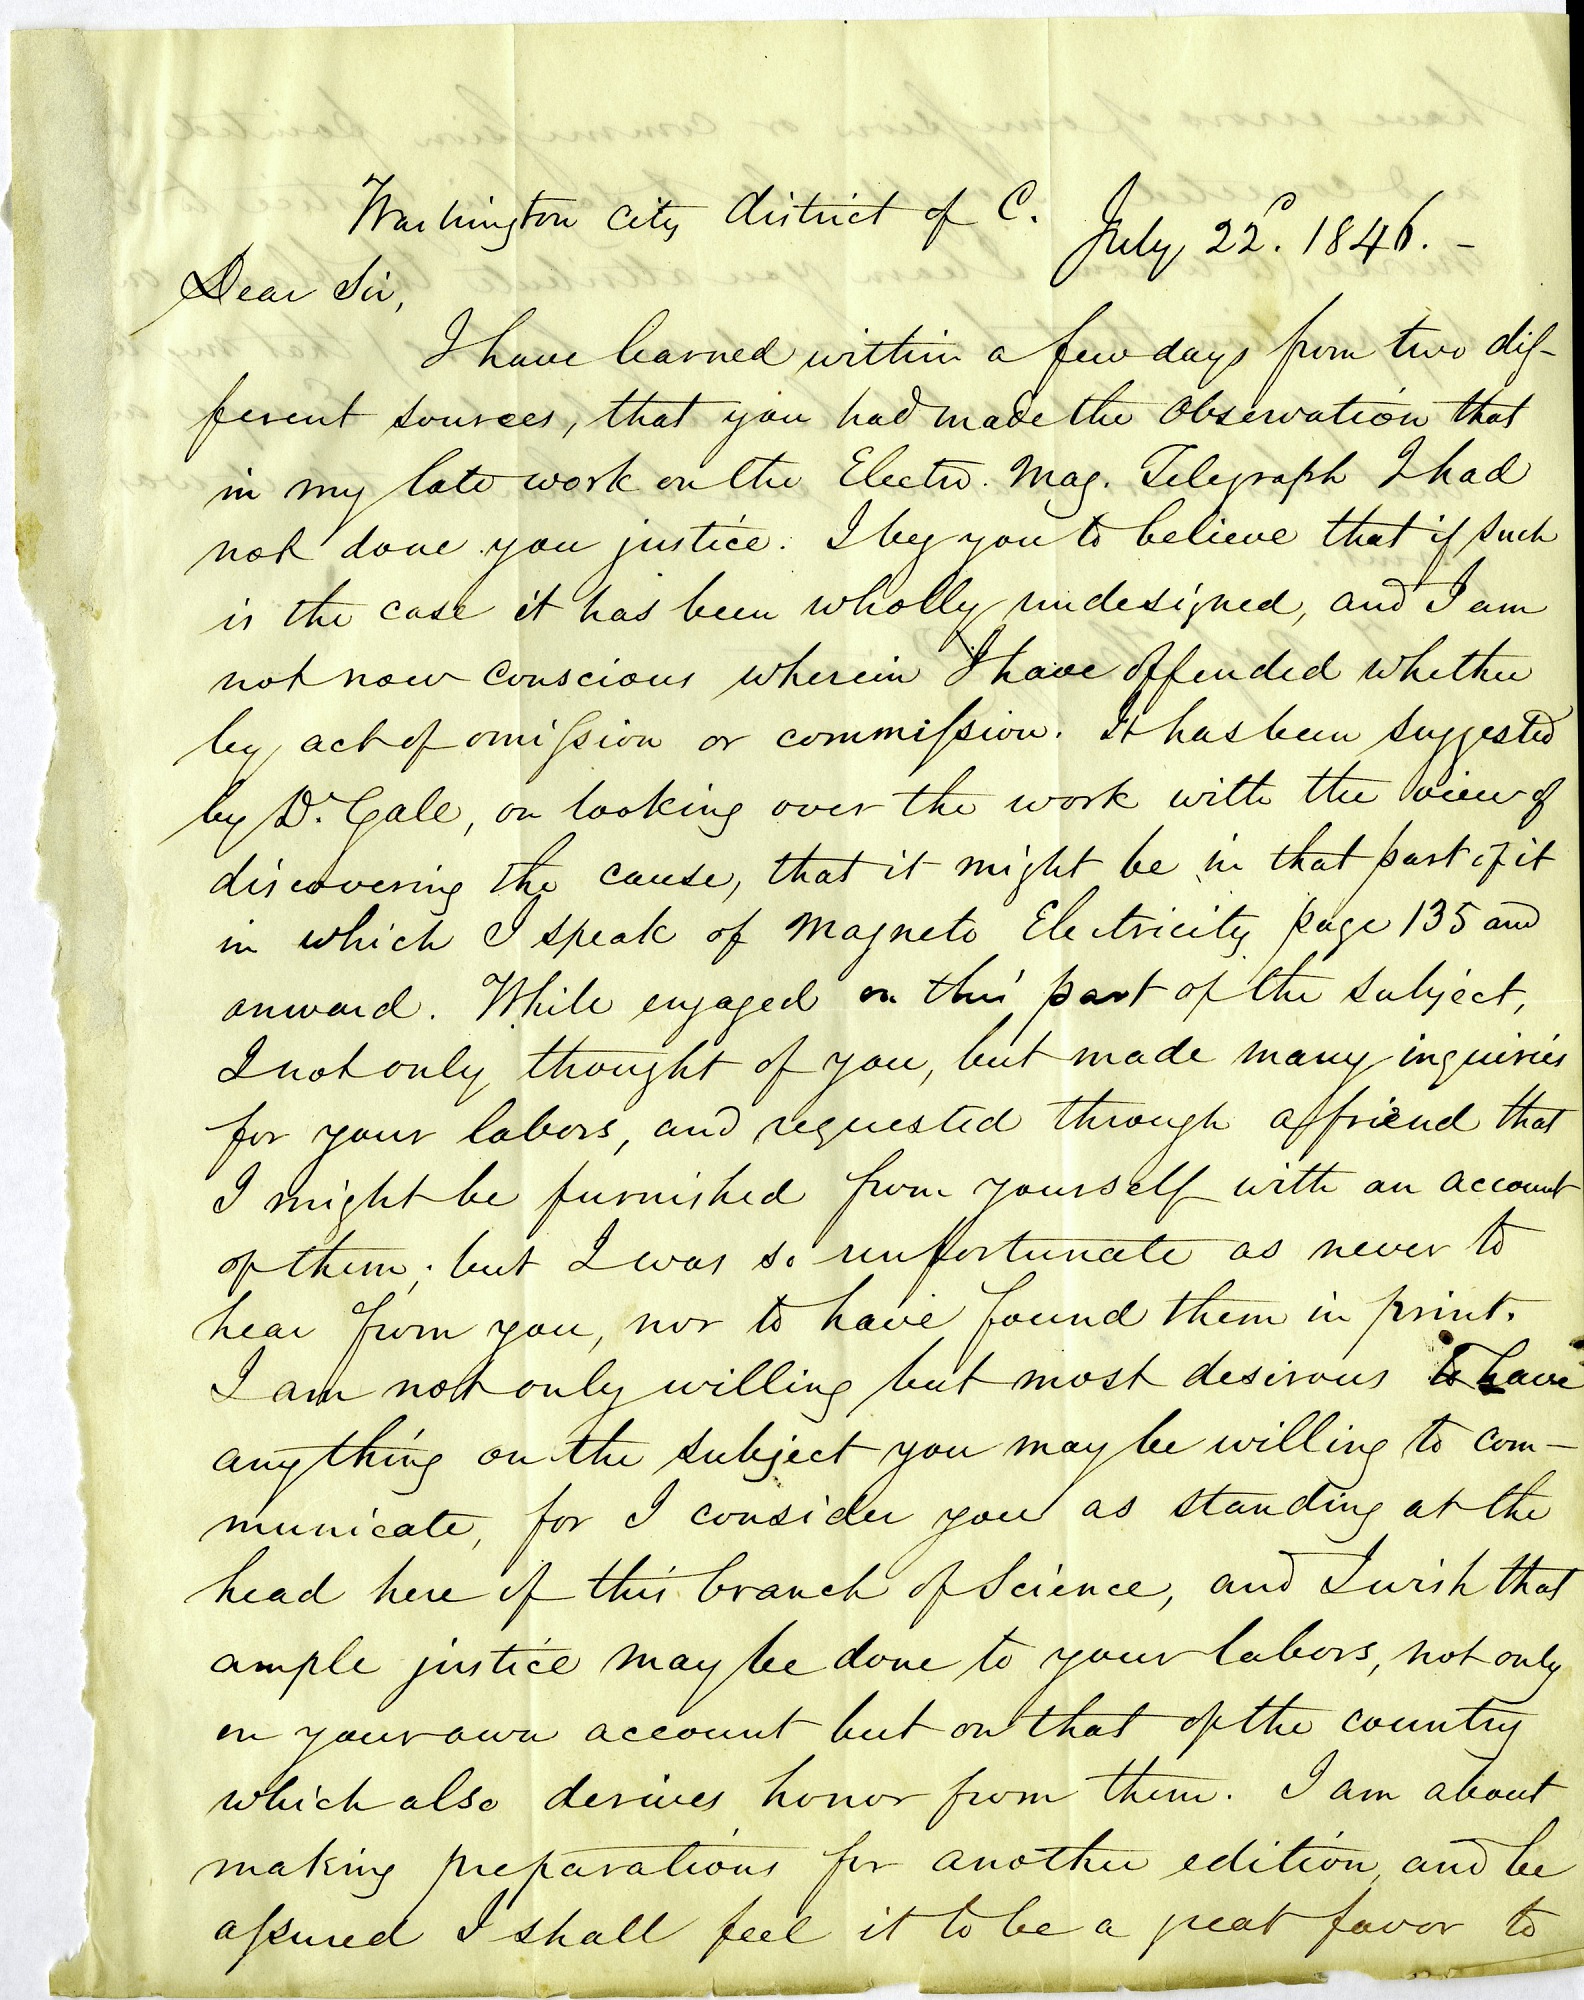 Washington City District of C. July 22d. 1846. –
Dear Sir,
I have learned within a few days from two dif-
ferent sources, that you had made the observation that
in my late work on the Electro. Mag. Telegraph I had
not done you justice. I beg you to believe that if such
is the case it has been wholly undesigned, and I am
not now conscious wherein I have offended whether
by act of omission or commission. It has been suggested
by Dr. Gale, on looking over the work with the view of
discovering the cause, that it might be in that part of it
in which I speak of Magneto Electricity page 135 and
onward. While engaged on this part of the subject,
I not only thought of you, but made many inquiries
for your labors, and requested through a friend that
I might be furnished from yourself with an account
of them; but I was so unfortunate as never to
hear from you, nor to have found them in print.
I am not only willing but most desirous to have
anything on the subject you may be willing to com-
municate, for I consider you as standing at the
head here of this branch of Science, and I wish that
ample justice may be done to your labors, not only
on your own account but on that of the country
which also derives honor from them. I am about
making preparations for another edition, and be
assured I shall feel it to be a great favor to